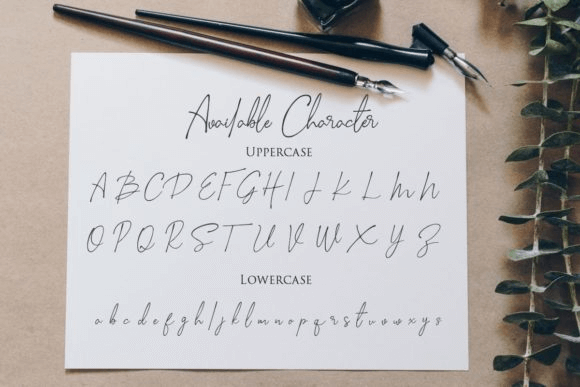 Available Character
UPPERCASE
A B C D E F G H I J K L M N
O P Q R S T U V W X Y Z
LOWERCASE
a b c d e f g h i j k l m n o p q r s t u v w x y z